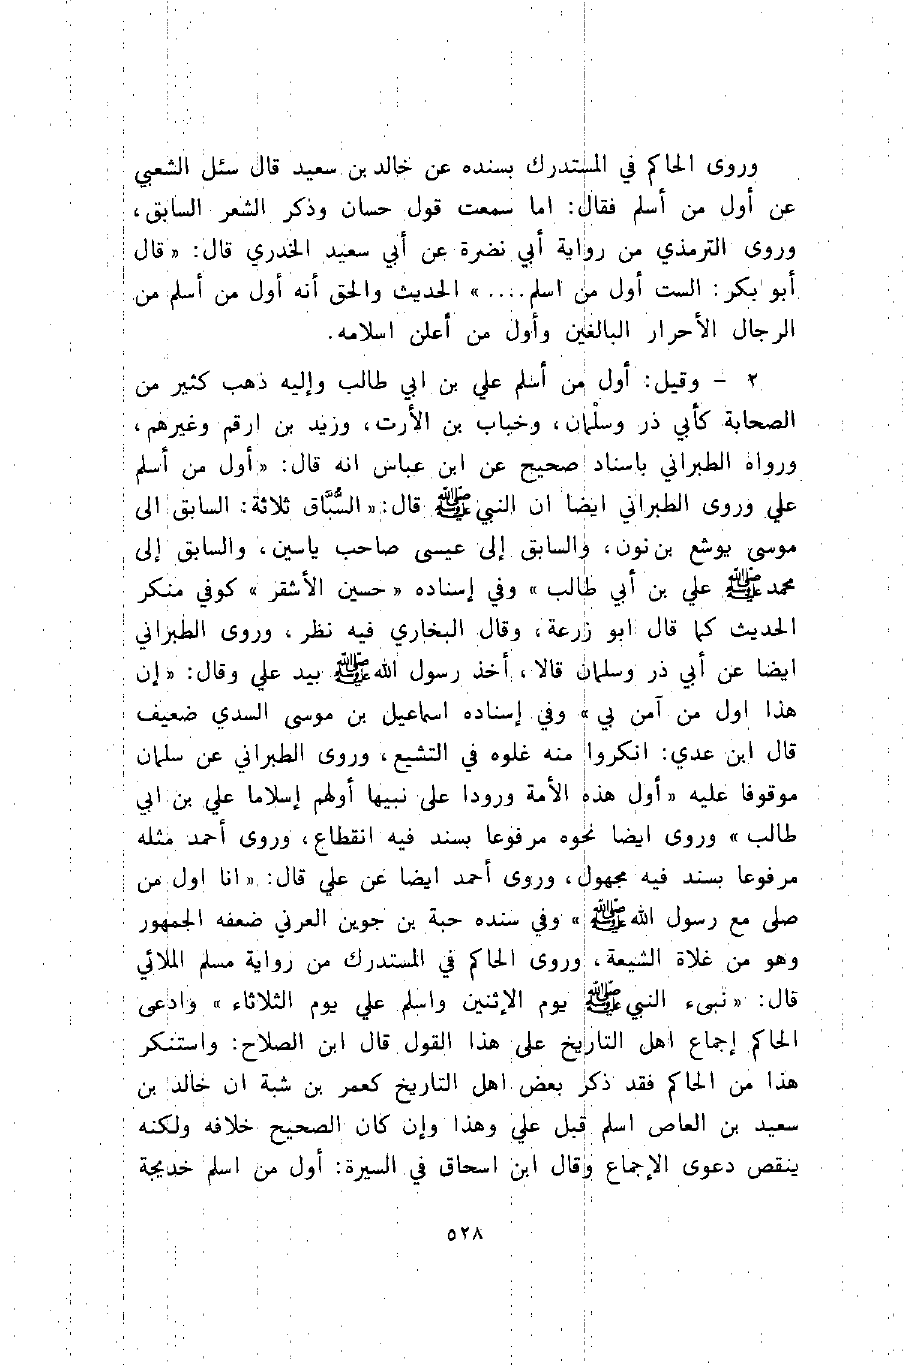 وروى الحاكم في المستدرك بسنده عن خالد بن سعيد قال سئل الشعبي
عن أول من أسلم فقال: اما سمعت قول حسان وذكر الشعر السابق،
وروى الترمذي من رواية أبي نضرة عن أبي سعيد الخدري قال: «قال
أبو بكر: الست أول من اسلم....» الحديث والحق أنه أول من أسلم من
الرجال الأحرار البالغين وأول من أعلن اسلامه.
٢ - وقيل: أول من أسلم علي بن ابي طالب وإليه ذهب كثير من
الصحابة كأبي ذر وسلْمان، وخباب بن الأرت، وزيد بن ارقم وغيرهم،
ورواه الطبراني باسناد صحيح عن ابن عباس انه قال: «أول من أسلم
علي وروى الطبراني ايضا ان النبي ﷺ قال: «السُّبَّاق ثلاثة: السابق الى
موسى يوشع بن نون، والسابق إلى عيسى صاحب ياسين، والسابق إلى
محمد ﷺ علي بن أبي طالب» وفي إسناده «حسين الأشقر» كوفي منكر
الحديث كما قال ابو زرعة، وقال البخاري فيه نظر، وروى الطبراني
ايضا عن أبي ذر وسلمان قالا، أخذ رسول الله ﷺ بيد علي وقال: «إن
هذا اول من آمن بي» وفي إسناده اسماعيل بن موسى السدي ضعيف
قال ابن عدي: انكروا منه غلوه في التشيع، وروى الطبراني عن سلمان
موقوفا عليه «أول هذه الأمة ورودا على نبيها أولهم إسلاما علي بن ابي
طالب» وروى ايضا نحوه مرفوعا بسند فيه انقطاع، وروى أحمد مثله
مرفوعا بسند فيه مجهول، وروى أحمد ايضا عن علي قال: «انا اول من
صلى مع رسول الله ﷺ» وفي سنده حبة بن جوين العرني ضعفه الجمهور
وهو من غلاة الشيعة، وروى الحاكم في المستدرك من رواية مسلم الملائي
قال: «نبىء النبي ﷺ يوم الإثنين واسلم علي يوم الثلاثاء» وادعى
الحاكم إجماع اهل التاريخ على هذا القول قال ابن الصلاح: واستنكر
هذا من الحاكم فقد ذكر بعض اهل التاريخ كعمر بن شبة ان خالد بن
سعيد بن العاص اسلم قبل علي وهذا وإن كان الصحيح خلافه ولكنه
ينقص دعوى الإجماع وقال ابن اسحاق في السيرة: أول من اسلم خديجة
٥٢٨